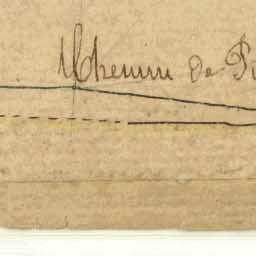 Chemin de